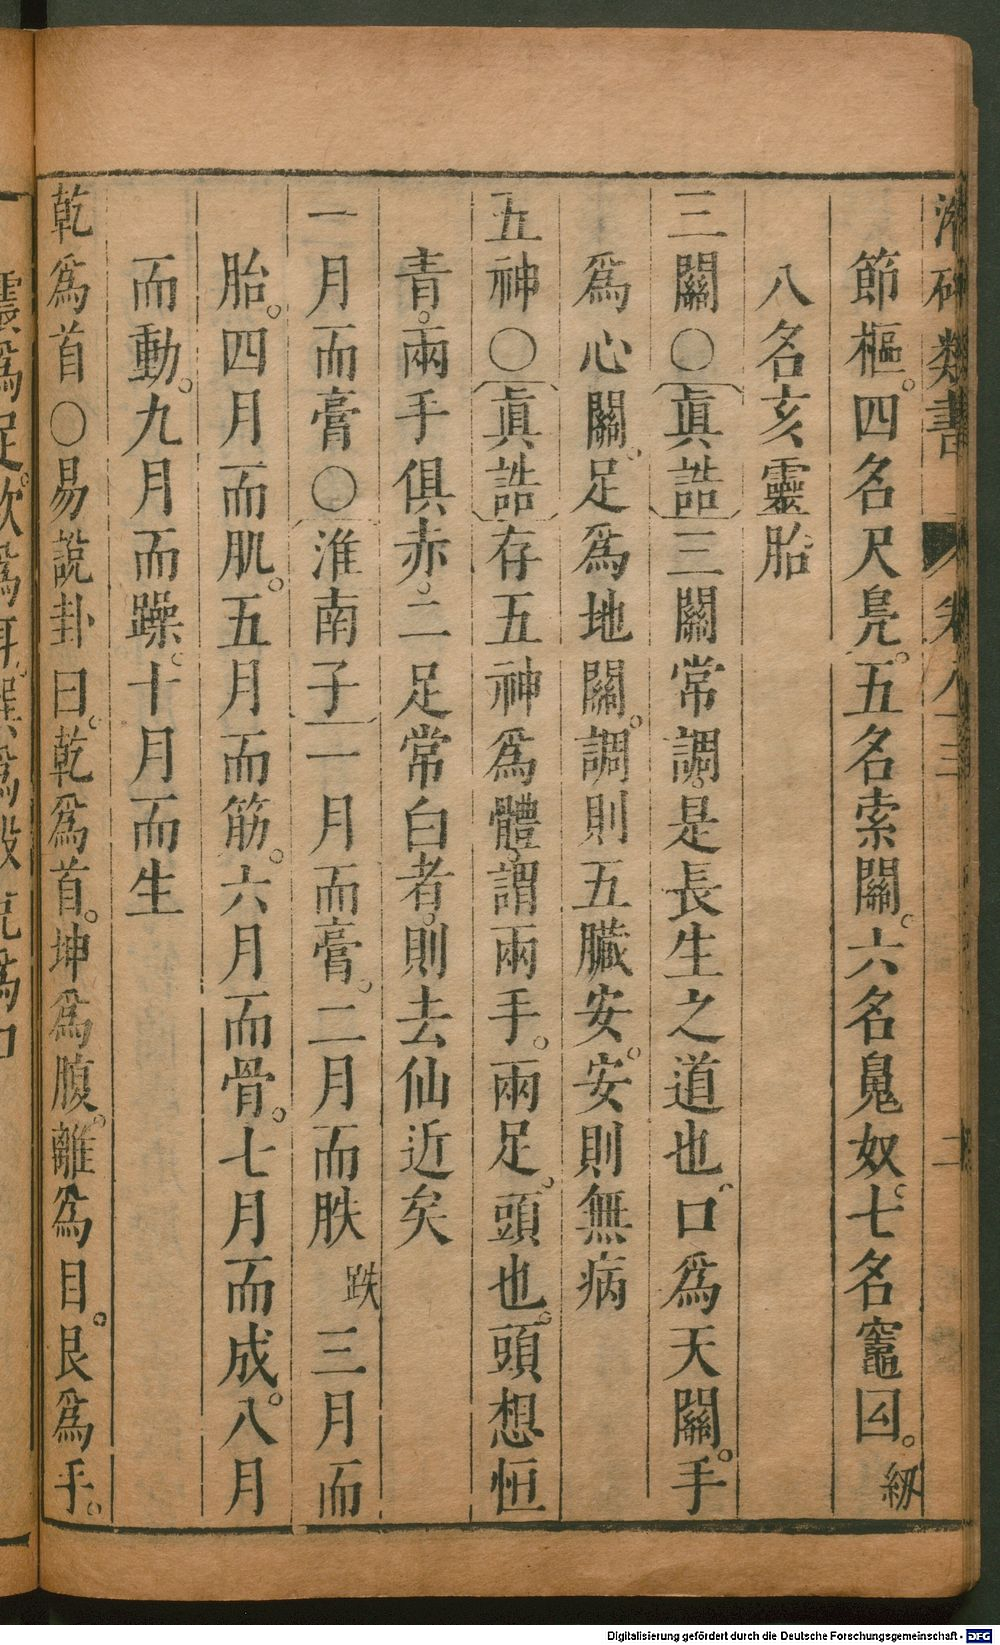 類書 卷八三 二
節樞。四名尺鳧。五名索關。六名䰟奴。七名竈囦。
八名亥靈胎
三關〇眞誥三關常調。是長生之道也。口爲天關。手
爲心關。足爲地關。調則五臟安。安則無病
五神〇眞誥存五神爲體。謂兩手。兩足。頭也。頭想恒
青。兩手俱赤。二足常白者。則去仙近矣
一月而膏〇淮南子一月而膏。二月而胅跌三月而
胎。四月而肌。五月而筋。六月而骨。七月而成。八月
而動。九月而躁。十月而生
乾爲首〇易說卦曰。乾爲首。坤爲腹。離爲目。艮爲手。
震爲足。坎爲耳。巽爲股 兌爲口
Digitalisierung gefördert durch die Deutsche Forschungsgemeinschaft - DFG